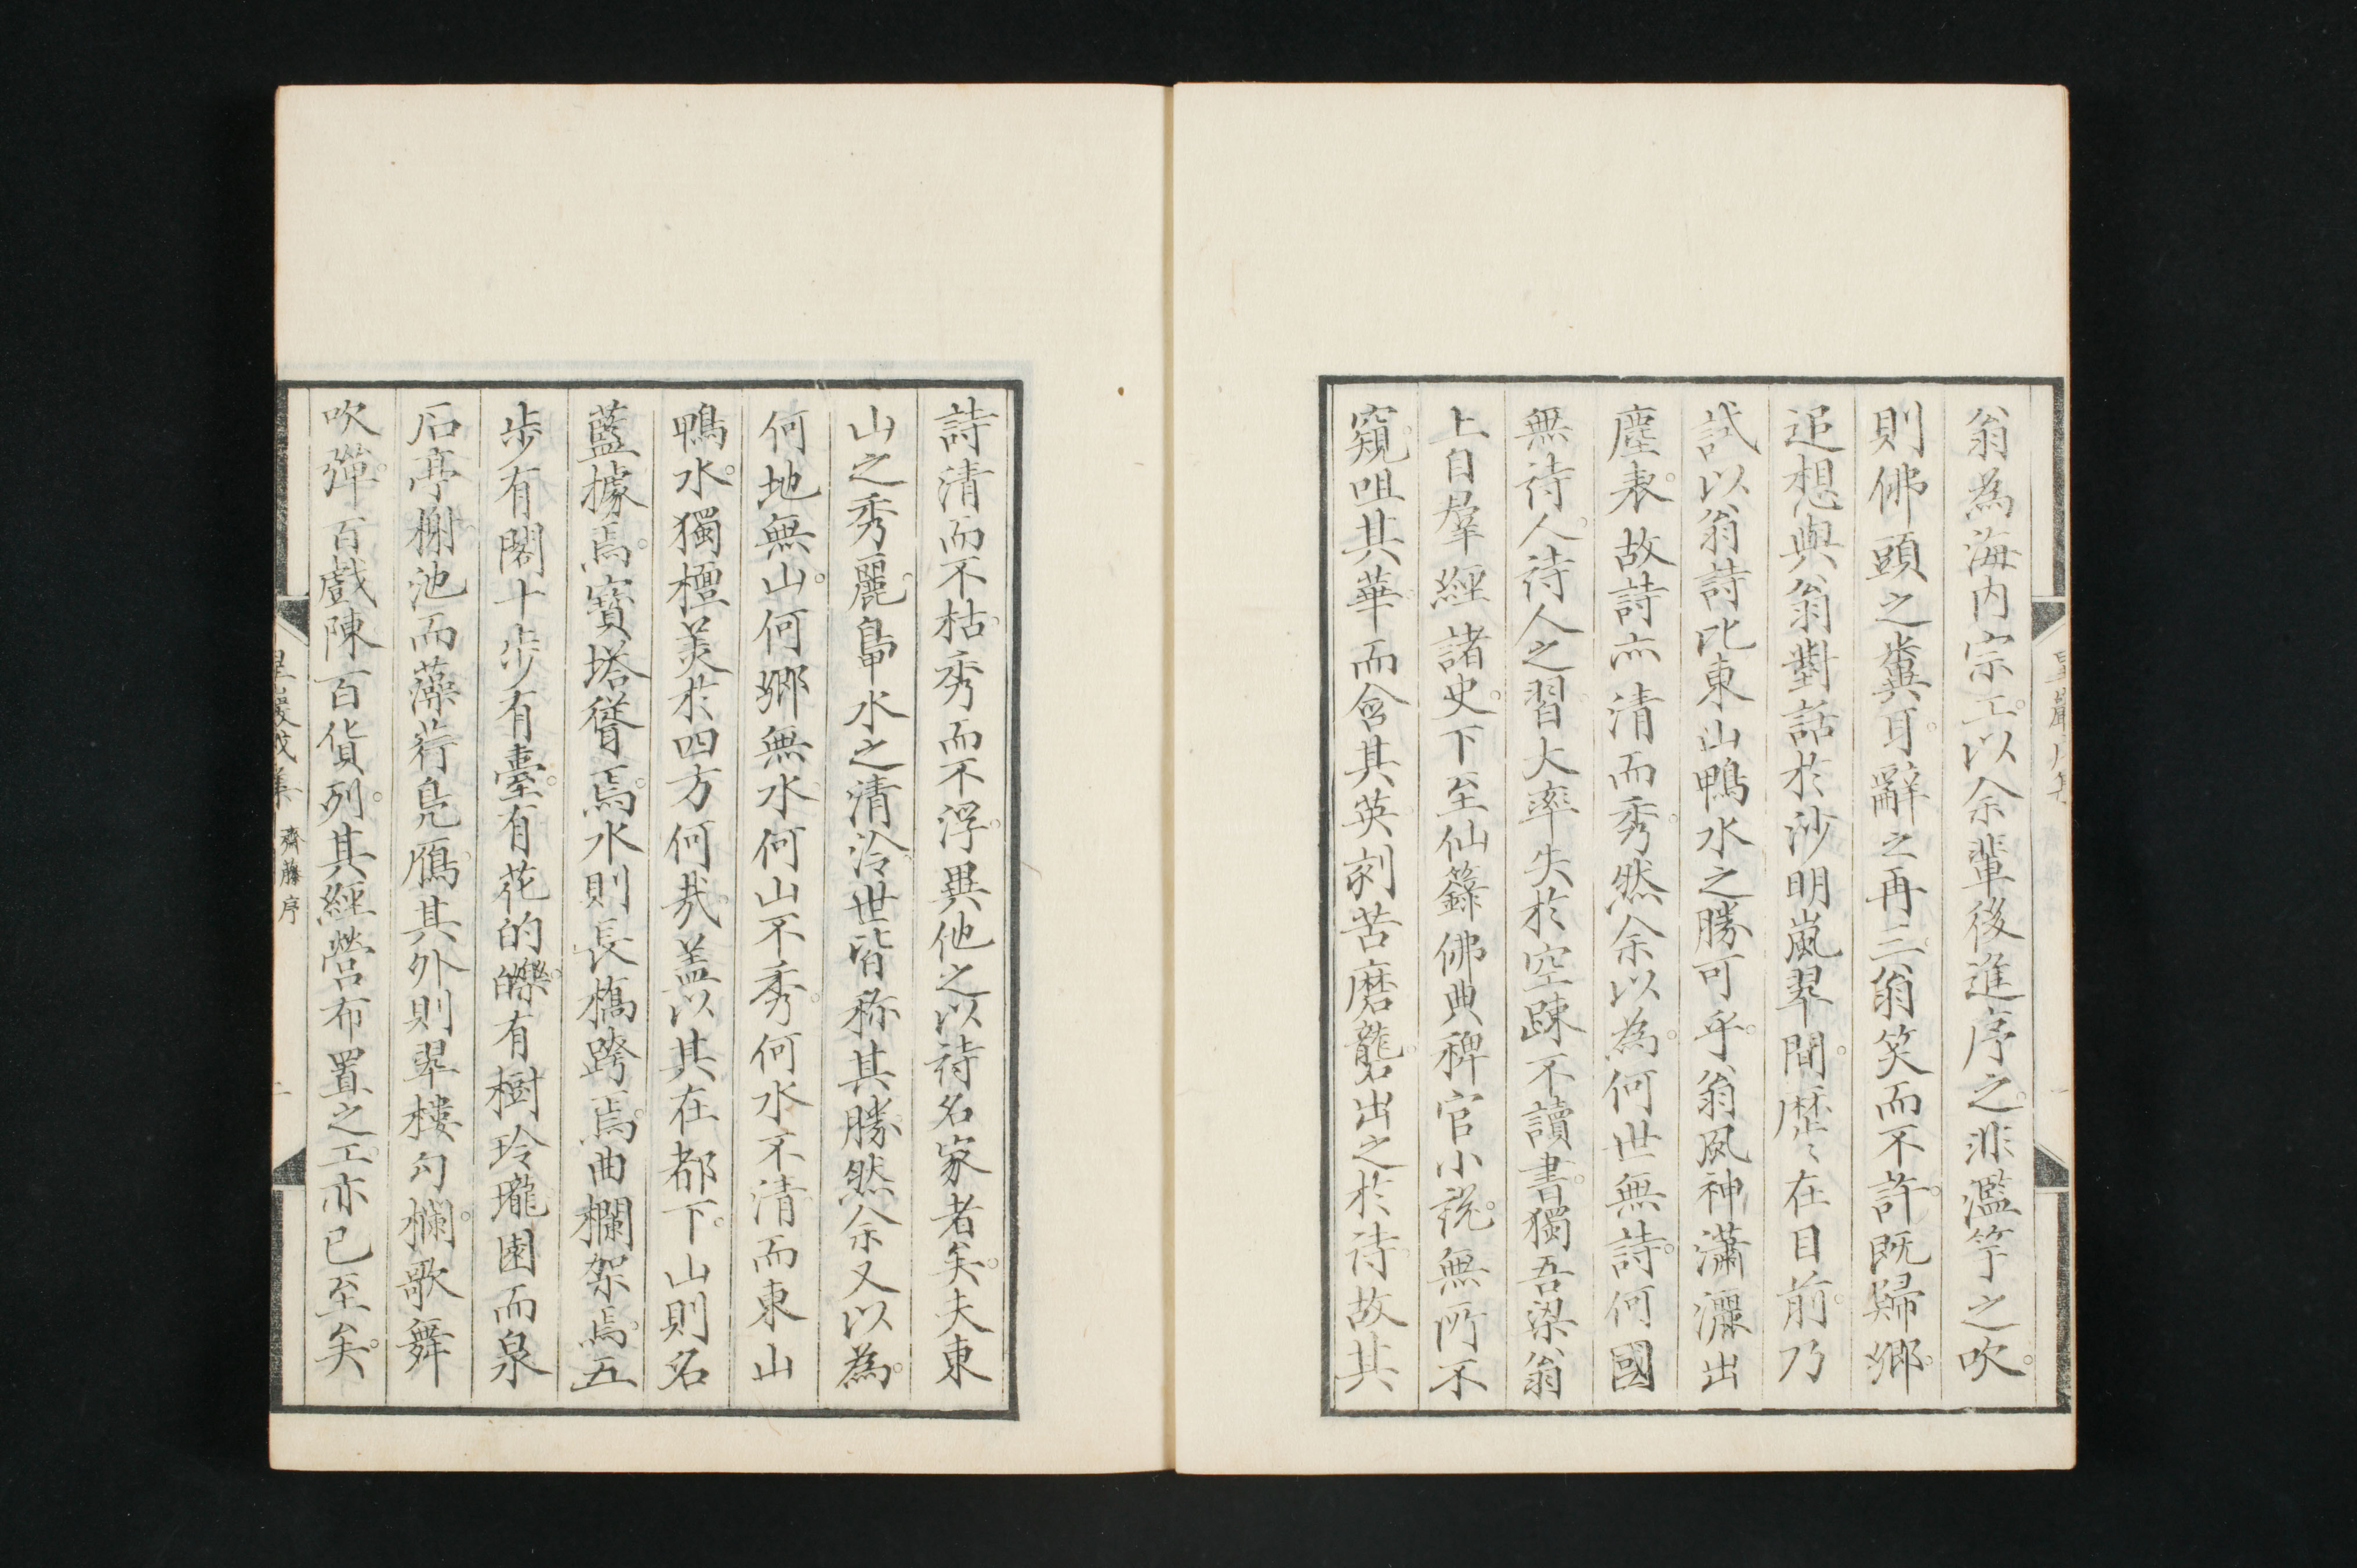 翁為海内宗工。以余輩後進序之。非濫竽之吹。
則佛頭之糞耳。辭之再三。翁笑而不許。既歸鄉。
追想與翁對話於沙明嵐翠間。歴〻在目前。乃
試以翁詩比東山鴨水之勝可乎。翁風神瀟灑出
塵表。故詩亦清而秀。然余以為。何世無詩。何國
無詩人。詩人之習。大率失於空疎不讀書。獨吾梁翁
上自羣經諸史。下至仙籙佛典稗官小說。無所不
窺。咀其華。而含其英。刻苦磨礲。出之於詩。故其
詩清而不枯。秀而不浮。異他之以詩名家者矣。夫東
山之秀麗。鳧水之清泠。世皆称其勝。然余又以為。
何地無山。何鄉無水。何山不秀。何水不清。而東山
鴨水。獨檀美於四方何哉。盖以其在都下。山則名
藍據焉。寳塔聳焉。水則長橋跨焉。曲欄架焉。五
步有閣。十步有臺。有花的皪。有樹玲瓏。園而泉
石亭榭。池而藻荇鳧鴈。其外則翠樓勾欄。歌舞
吹彈。百戲陳百貨列。其經營布置之工。亦已至矣。
齊藤序